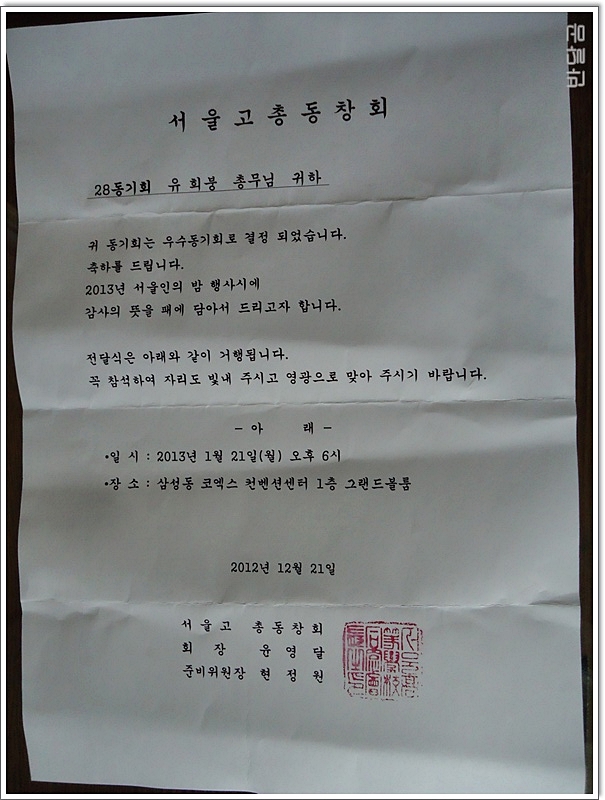 반달곰
서울고총동창회
28동기회 유희봉 총무님 귀하
귀 동기회는 우수동기회로 결정 되었습니다.
축하를 드립니다.
2013년 서울인의 밤 행사시에
감사의 뜻을 패에 담아서 드리고자 합니다.
전달식은 아래와 같이 거행됩니다.
꼭 참석하여 자리도 빛내 주시고 영광으로 맞아 주시기 바랍니다.
- 아 래 -
•일 시 : 2013년 1월 21일(월) 오후 6시
•장 소 : 삼성동 코엑스 컨벤션센터 1층 그랜드볼룸
2012년 12월 21일
서울고 총동창회
회 장 윤영달
준비위원장 현정원